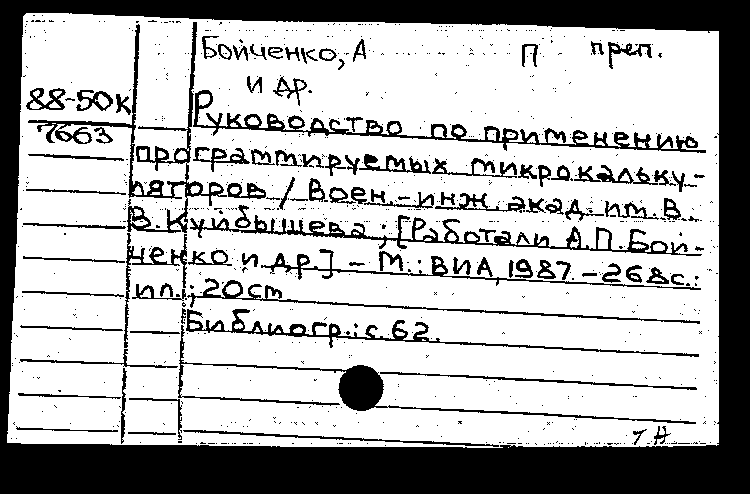 Бойченко, А П преп.
и др.
88-50К
7663
Руководство по применению
программируемых микрокальку-
ляторов / Воен.-инж. акад. им. В.
В. Куйбышева ; [Работали А.П. Бой-
ченко и др.] - М.: ВИА, 1987. - 268 с.:
ил.; 20 cm
Библиогр.: с. 62.
т н